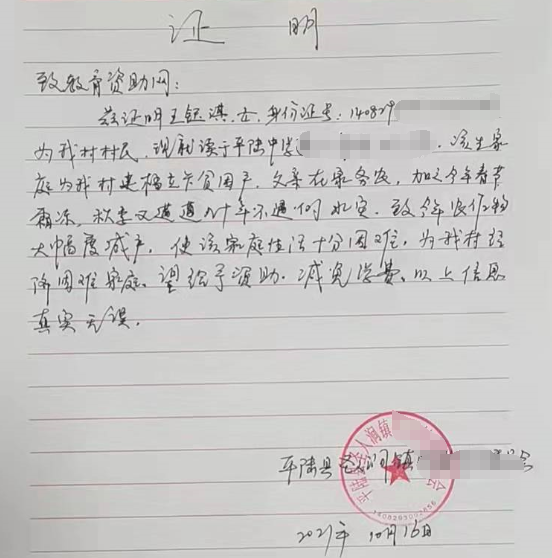 证 明
致教育资助网：
兹证明王钰淇，女，身份证号：140829
为我村村民，现就读于平陆中学 ，该生家
庭为我村建档立卡贫困户，父亲在家务农，加之今年春节
霜冻，秋季又遭遇几十年不遇的水灾，致今年农作物
大幅度减产，使该家庭生活十分困难，为我村
困难家庭，望给予资助，减免学费，以上信息
真实无误。
平陆县圣人涧镇
平陆县圣人涧镇 会
2021年10月16日